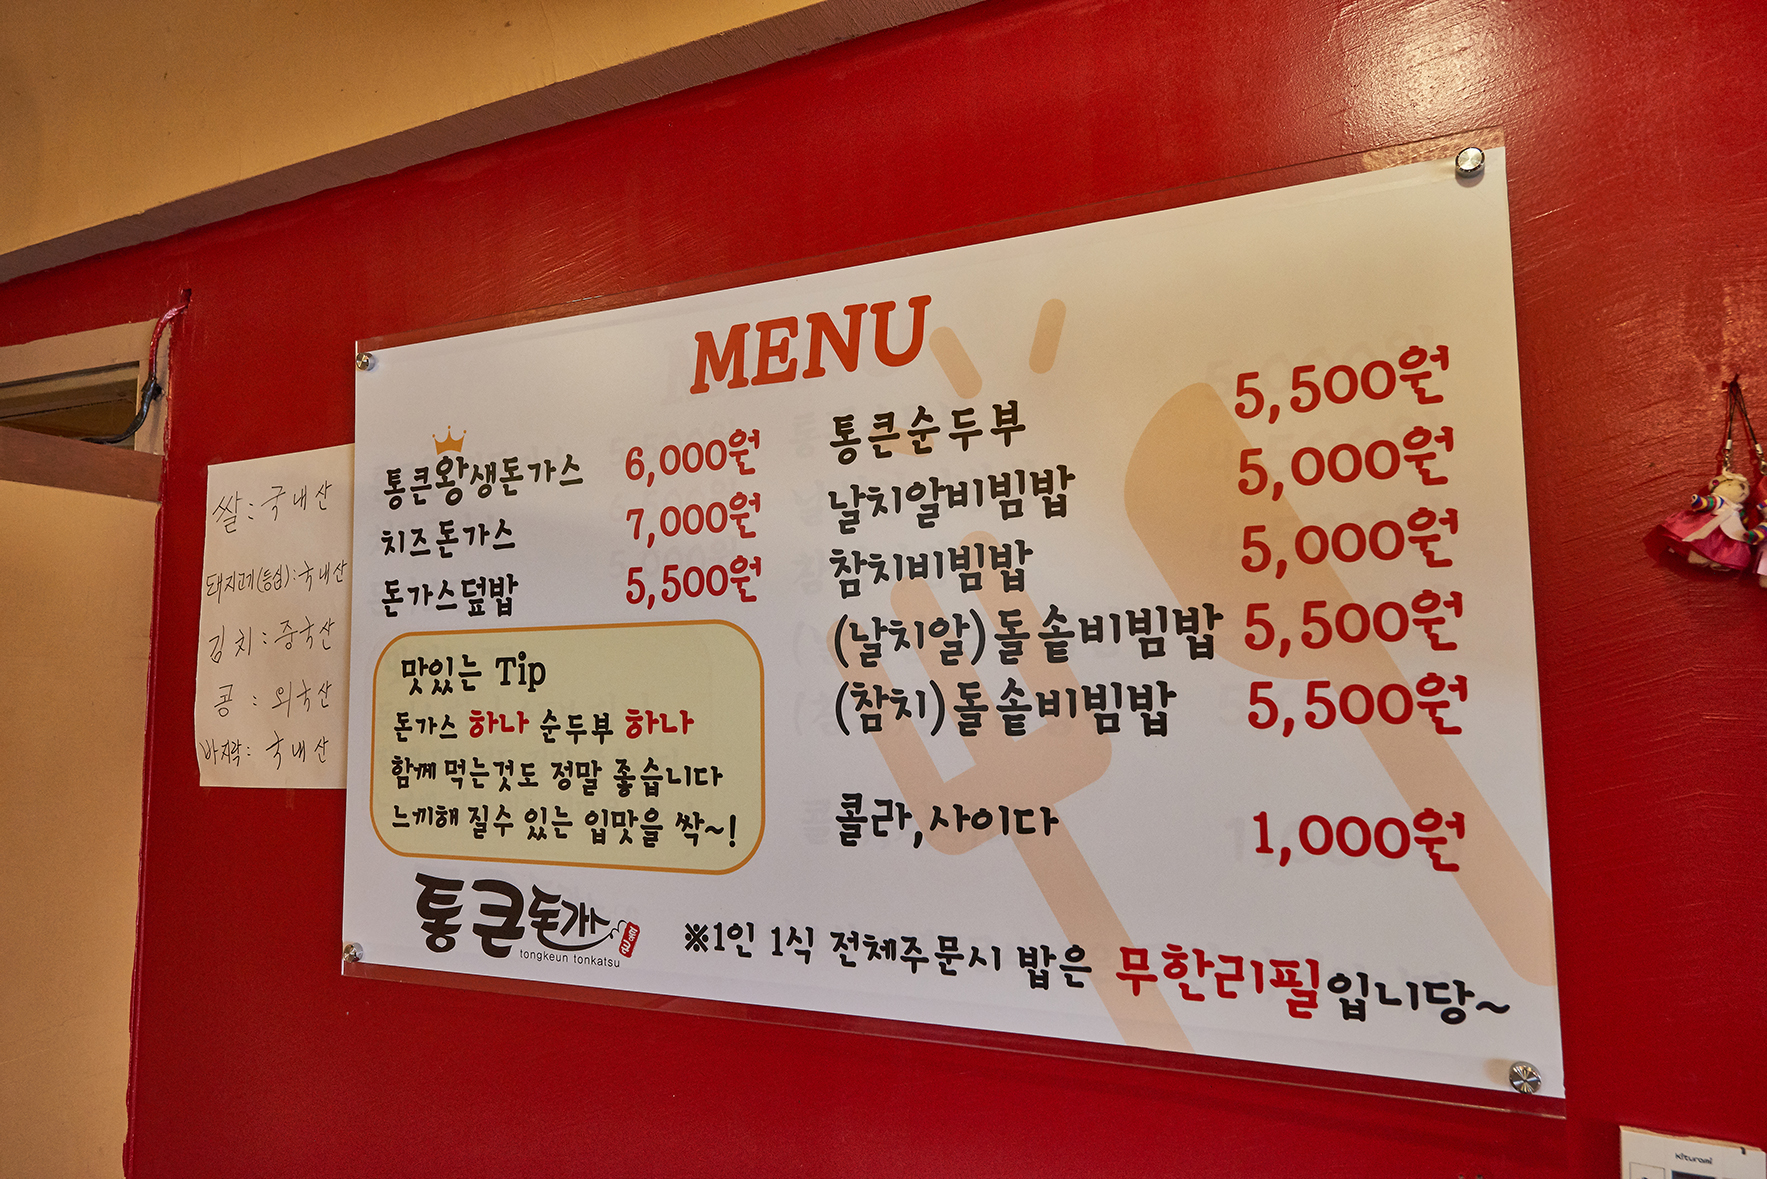 MENU
통큰왕생돈가스 6,000원
치즈돈가스 7,000원
돈가스덮밥 5,500원
맛있는 Tip
돈가스 하나 순두부 하나
함께 먹는것도 정말 좋습니다
느끼해 질수 있는 입맛을 싹~!
통큰순두부 5,500원
날치알비빔밥 5,000원
참치비빔밥 5,000원
(날치알)돌솥비빔밥 5,500원
(참치)돌솥비빔밥 5,500원
콜라,사이다 1,000원
통큰돈가스
tongkeun tonkatsu
※1인 1식 전체주문시 밥은 무한리필입니당~
쌀:국내산
돼지고기(등심):국내산
김치:중국산
콩:외국산
바지락:국내산
Kiturami